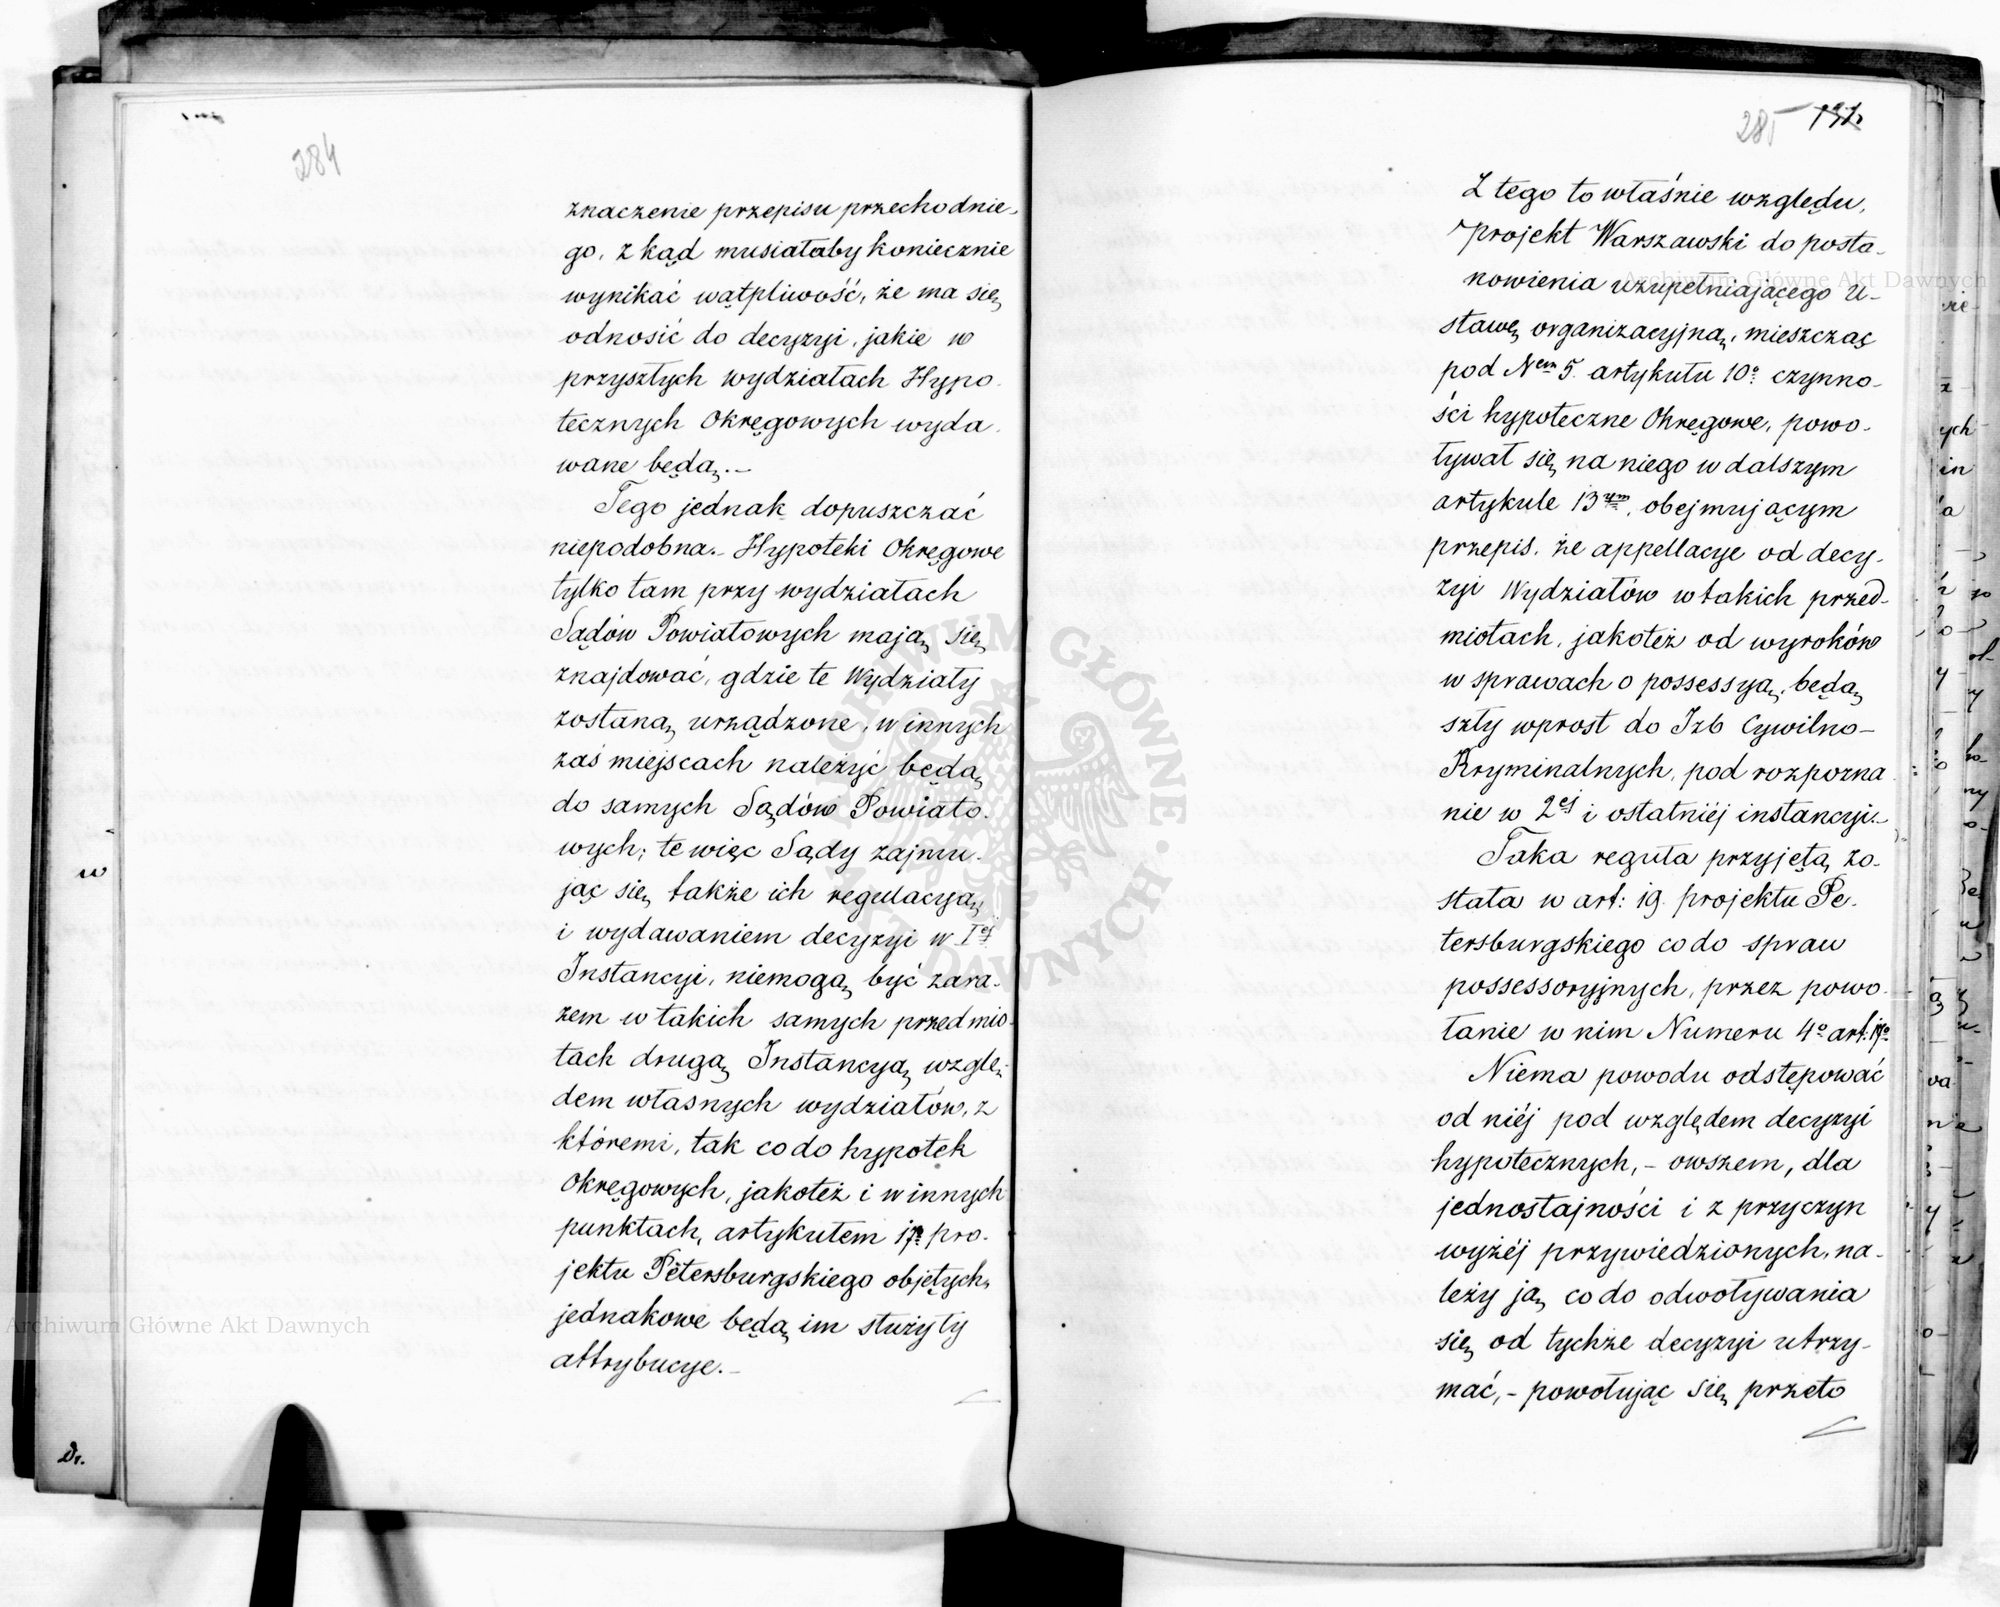 284
znaczenie przepisu przechodnie-
go, z kąd musiałaby koniecznie
wynikać wątpliwość, że ma się
odnosić do decyzyi, jakie w
przyszłych wydziałach Hypo-
tecznych Okręgowych wyda-
wane będą.—
Tego jednak dopuszczać
niepodobna.— Hypoteki Okręgowe
tylko tam przy wydziałach
Sądów Powiatowych mają się
znajdować, gdzie te Wydziały
zostaną urządzone, w innych
zaś miejscach należyć będą
do samych Sądów Powiato-
wych; te więc Sądy zajmu-
jąc się także ich regulacyą,
i wydawaniem decyzyi w Iej
Instancyi, niemogą być zara-
zem w takich samych przedmio-
tach drugą Instancyą wzglę-
dem własnych wydziałów, z
któremi, tak co do hypotek
Okręgowych, jakoteż i w innych
punktach, artykułem 17m pro-
jektu Petersburgskiego objętych,
jednakowe będą im służyły
attrybucye.—
285
Z tego to właśnie względu,
projekt Warszawski do posta-
nowienia uzupełniającego U-
stawę organizacyjną, mieszcząc
pod Nem 5. artykułu 10o czynno-
ści hypoteczne Okręgowe, powo-
ływał się na niego w dalszym
artykule 13ym, obejmującym
przepis, że appellacye od decy-
zyi Wydziałów w takich przed-
miotach, jakoteż od wyroków
w sprawach o possessyą, będą
szły wprost do Izb Cywilno-
Kryminalnych, pod rozpozna-
nie w 2ej i ostatniéj instancyi.—
Taka reguła przyjętą zo-
stała w art: 19. projektu Pe-
tersburgskiego co do spraw
possessoryjnych, przez powo-
łanie w nim Numeru 4o art: 17o
Niema powodu odstępować
od niéj pod względem decyzyi
hypotecznych,— owszem, dla
jednostajności i z przyczyn
wyżéj przywiedzionych, na-
leży ją co do odwoływania
się od tychże decyzyi utrzy-
mać,— powołując się przeto
Archiwum Główne Akt Dawnych
Archiwum Główne Akt Dawnych
ARCHIWUM GŁÓWNE AKT DAWNYCH